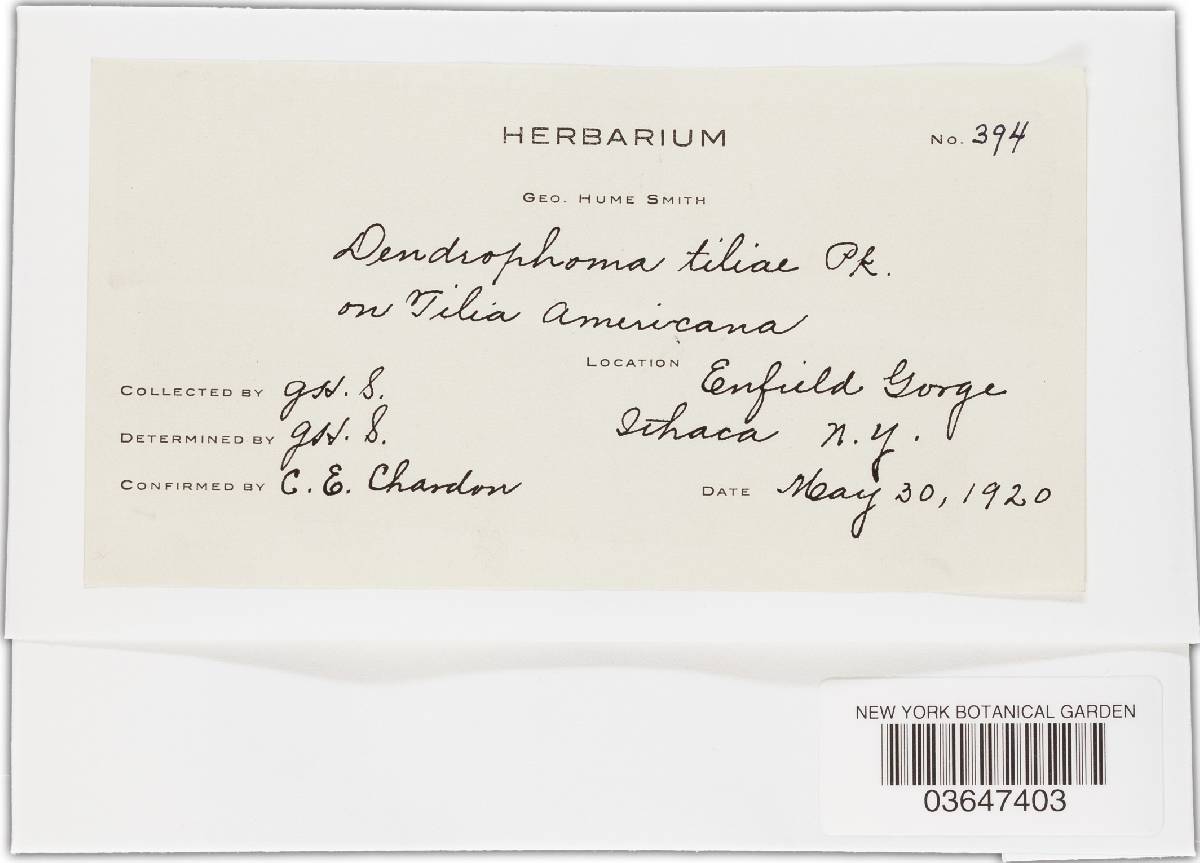 HERBARIUM
No. 394
GEO. HUME SMITH
Dendrophoma tiliae Pk.
on Tilia Americana
LOCATION Enfield Gorge
Ithaca N.Y.
COLLECTED BY G.H.S.
DETERMINED BY G.H.S.
CONFIRMED BY C. E. Chardon
DATE May 30, 1920
NEW YORK BOTANICAL GARDEN
03647403